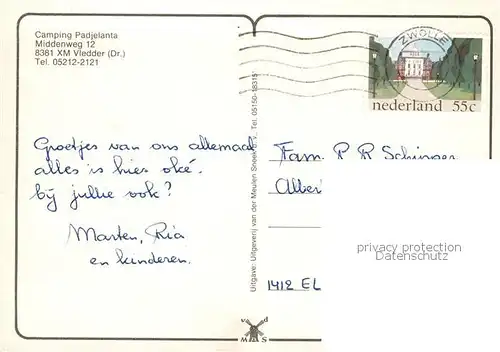 Camping Padjelanta
Middenweg 12
8381 XM Vledder (Dr.)
Tel. 05212-2121
ZWOLLE
nederland 55c
Groetjes van ons allemaal
alles is hier oké.
bij jullie ook?
Marten, Ria
en kinderen.
Uitgave: Uitgeverij van der Meulen Sneek b.v. Tel. 05150-18315
Fam. P R Schinper
Alber
1412 EL
privacy protection
Datenschutz
v d
M S